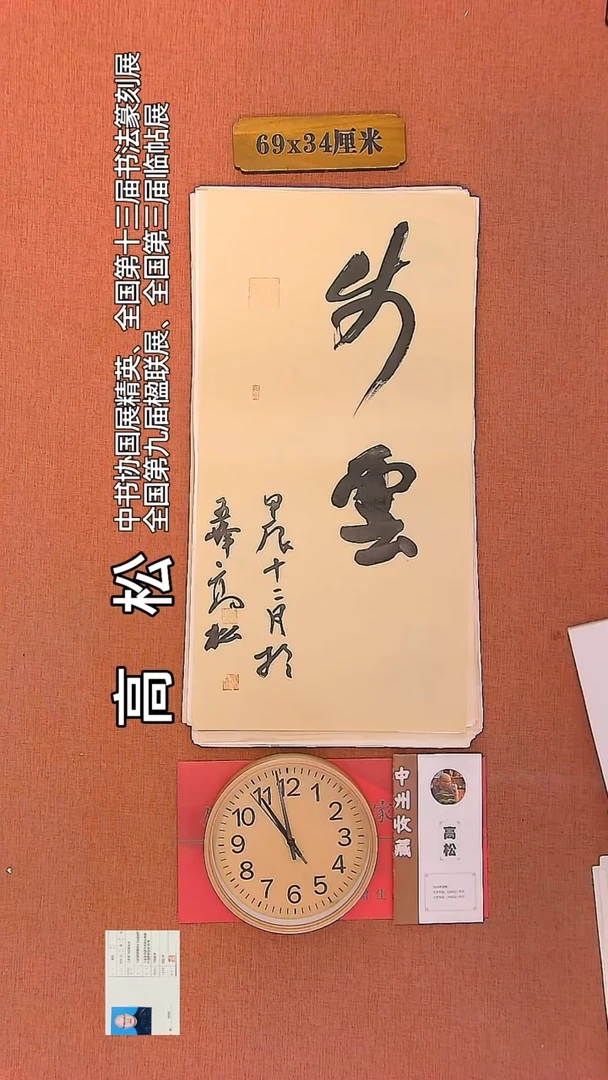 69x34厘米
步雲
甲辰十二月於
華高松
高松
中书协国展精英、全国第十三届书法篆刻展
全国第九届楹联展、全国第三届临帖展
12
1
2
3
4
5
6
7
8
9
10
11
家
中州收藏
高松